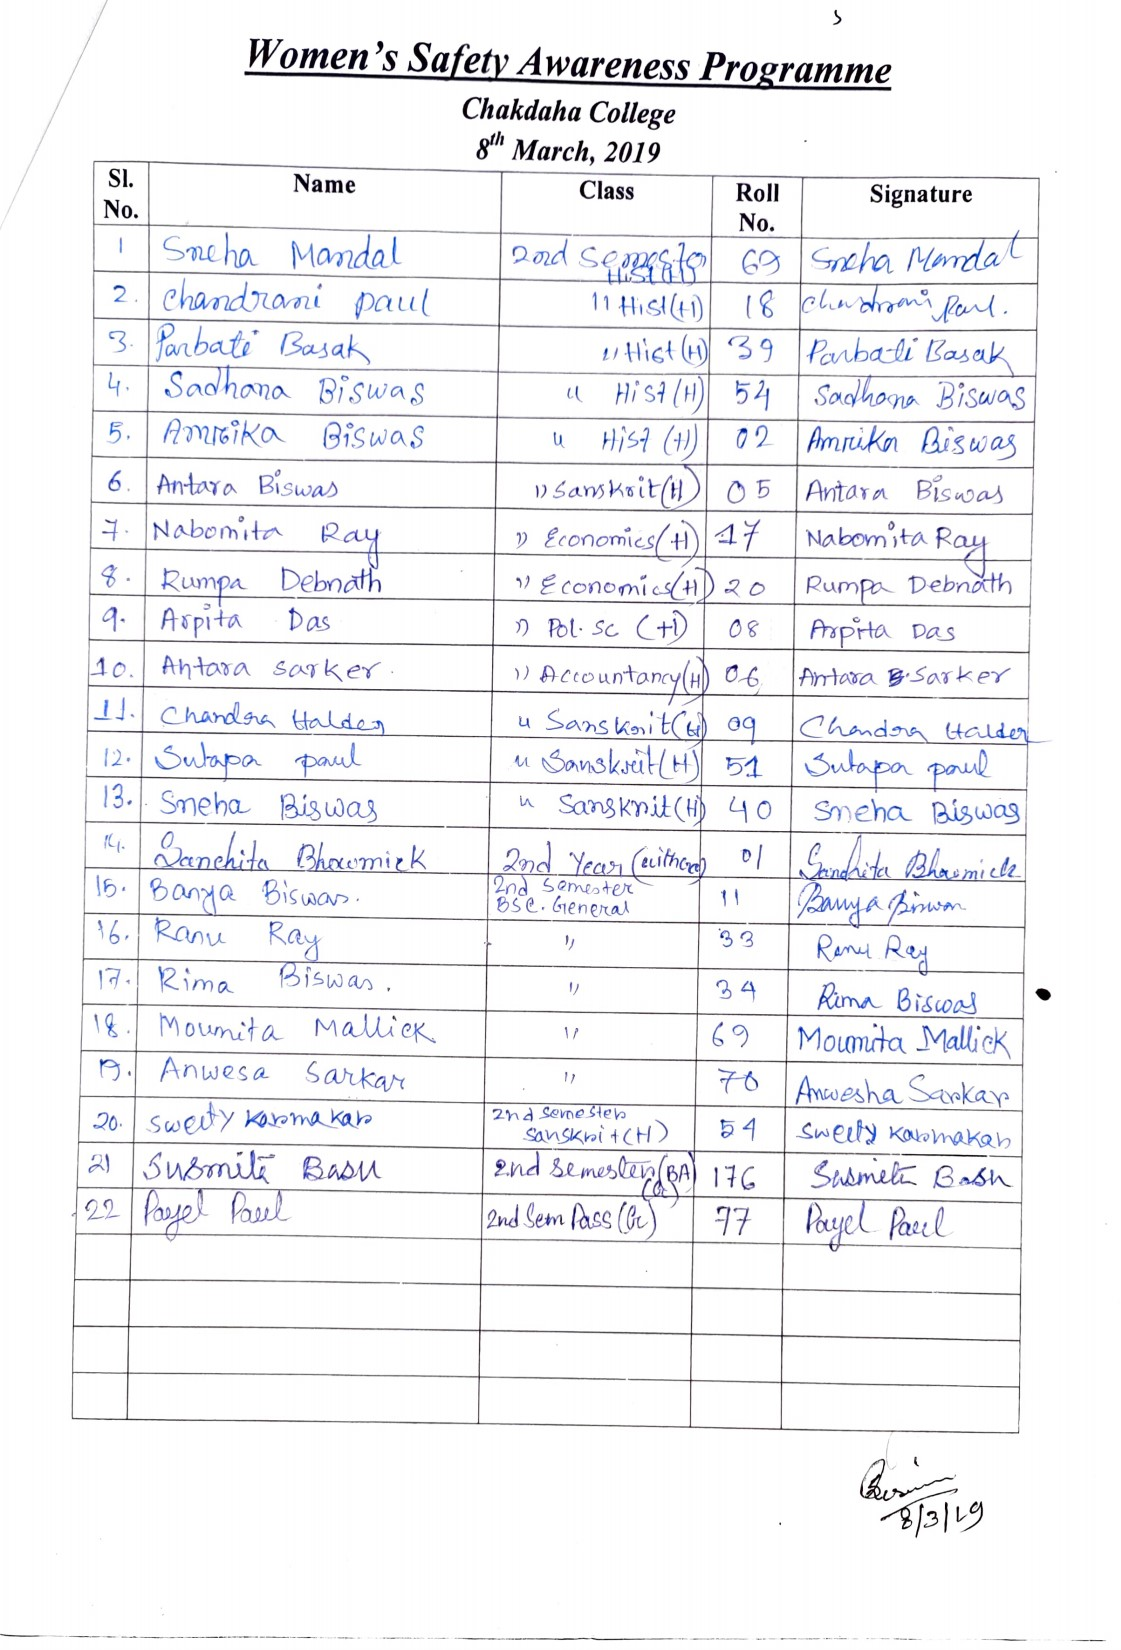 Women's Safety Awareness Programme
Chakdaha College
8th March, 2019
Sl. No. Name Class Roll No. Signature
1 Sneha Mandal 2nd Semester Hist(H) 69 Sneha Mandal
2. Chandrani paul 11 Hist(H) 18 Chandrani Paul.
3. Parbati Basak 11 Hist(H) 39 Parbati Basak
4. Sadhana Biswas u Hist(H) 54 Sadhona Biswas
5. Amrika Biswas u Hist (H) 02 Amrika Biswas
6. Antara Biswas 11 Sanskrit(H) 05 Antara Biswas
7. Nabomita Ray 11 Economics(H) 17 Nabomita Ray
8. Rumpa Debnath 11 Economics(H) 20 Rumpa Debnath
9. Arpita Das 11 Pol. Sc (H) 08 Arpita Das
10. Antara sarker. 11 Accountancy(H) 06 Antara Sarker
11. Chandra Halder u Sanskrit(G) 09 Chandra Halder
12. Sutapa paul u Sanskrit(H) 51 Sutapa paul
13. Sneha Biswas u Sanskrit(H) 40 Sneha Biswas
14. Sanchita Bhowmick 2nd Year 01 Sanchita Bhowmick
15. Banya Biswas. 2nd Semester BSC. General 11 Banya Biswas
16. Ranu Ray 11 33 Ranu Ray
17. Rima Biswas. 11 34 Rima Biswas
18. Moumita Mallick 11 69 Moumita Mallick
19. Anwesa Sarkar 11 70 Anwesha Sarkar
20. Sweety Karmakar 2nd semester sanskrit(H) 54 Sweety Karmakar
21 Susmita Basu 2nd Semester (BA) (G) 176 Susmita Basu
22 Payel Paul 2nd Sem Pass (G) 77 Payel Paul
8/3/19